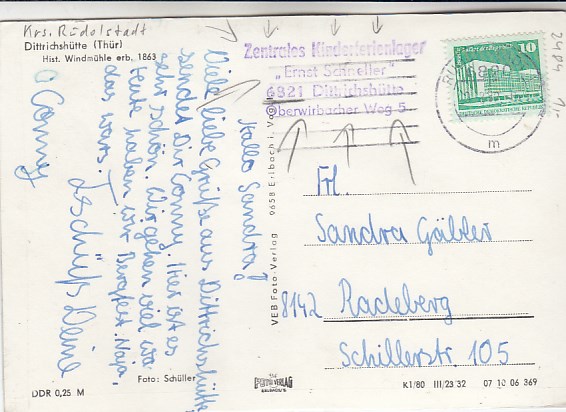 Krs. Rudolstadt
Dittrichshütte (Thür)
Hist. Windmühle erb. 1863
Zentrales Kinderferienlager
„Ernst Schneller"
6821 Dittrichshütte
Oberwirbacher Weg 5
10
DEUTSCHE DEMOKRATISCHE REPUBLIK
m
2404
1,-
Hallo Sandra!
Viele liebe Grüße aus Dittrichshütte
sendet Dir Conny. Hier ist es
sehr schön. Wir gehen viel
Heute haben wir Bergfest. Naja,
das wars. Tschüß Deine
Conny
Frl.
Sandra Gäbler
8142 Radeberg
Schillerstr. 105
VEB Foto-Verlag 9658 Erlbach i. Vogtl.
Foto: Schüller
DDR 0,25 M
FOTO VERLAG
K1/80 III/23 32 07 10 06 369